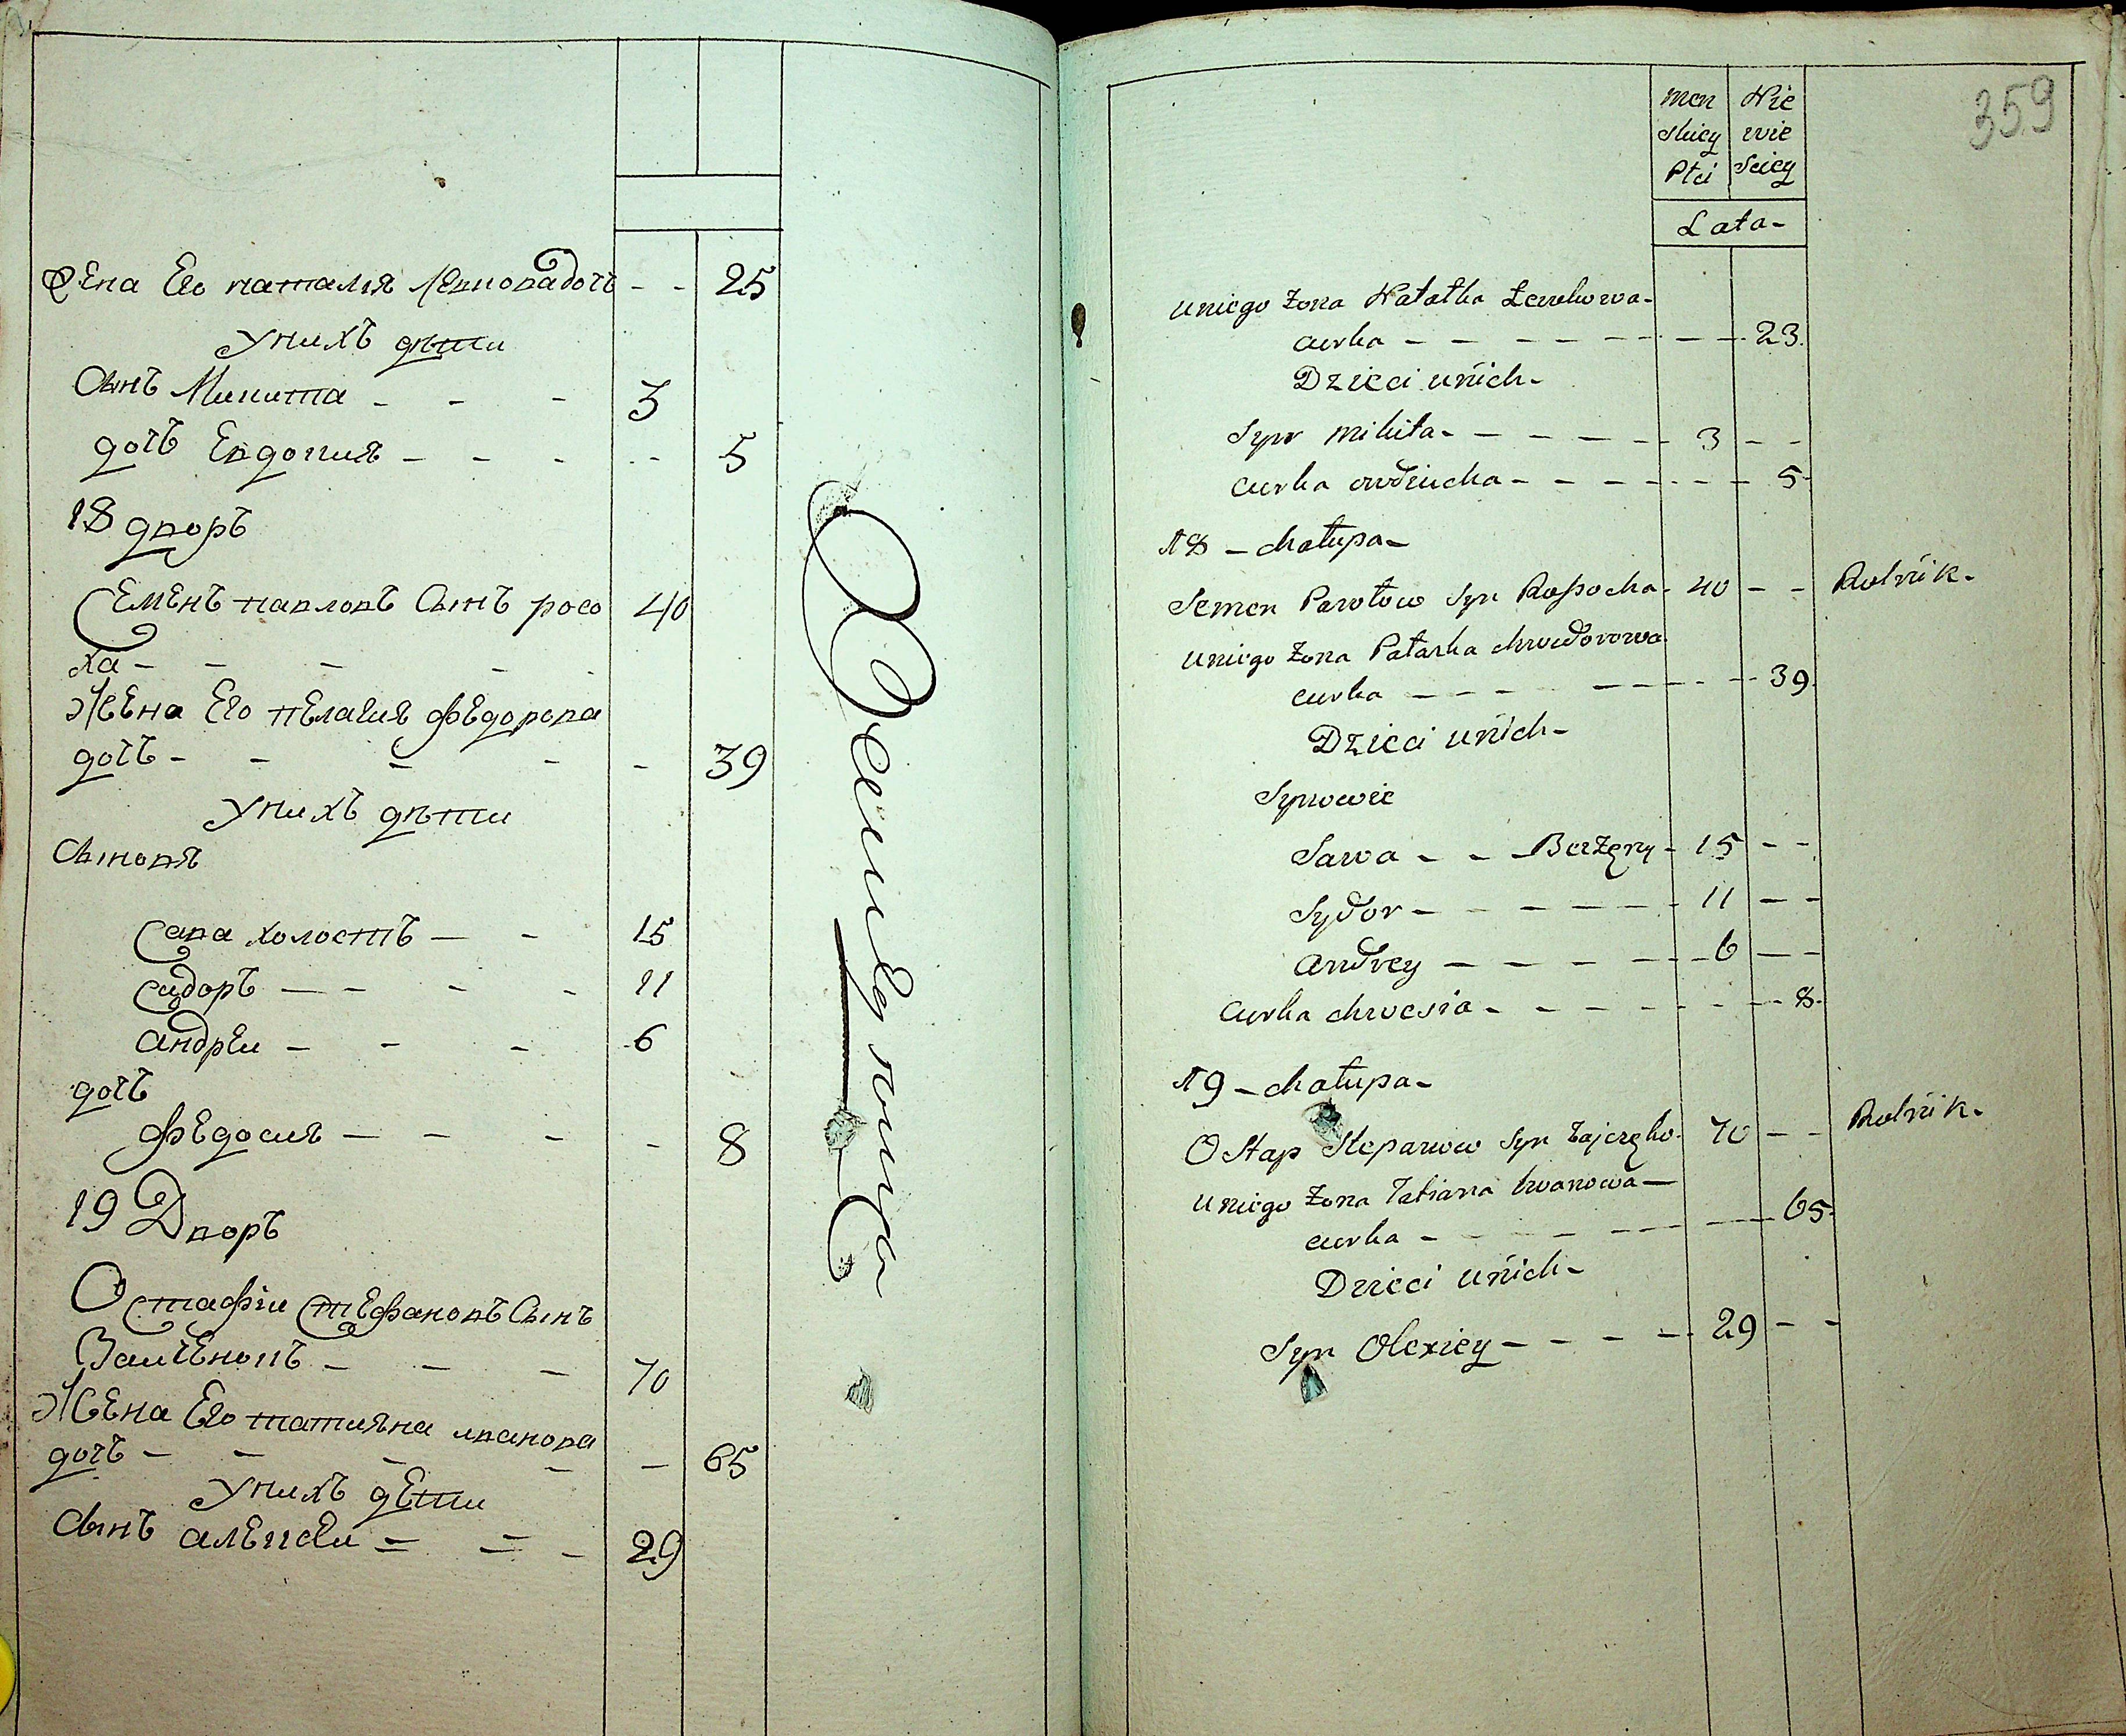 Жена Его наталия левкова дочь - - 25
У нихъ дѣти
Сынъ Микита - - - 3
дочь Евдокия - - - - - 5
18 дворъ
Семенъ павловъ Сынъ росо 40
ха - - - -
Жена Его пелагия федорова
дочь - - - - - 39
У нихъ дѣти
Сыновя
Сава холостъ - - 15
сидоръ - - - - 11
андреи - - - 6
дочь
федосия - - - - 8
19 Дворъ
Остафіи Стефановъ Сынъ
Заиченокъ - - - 70
Жена Его татияна иванова
дочь - - - - - 65
У нихъ дети
Сынъ алексеи - - - 29
men Nie
skiey wie
Płci sciey
Lata-
359
u niego Żona Natałka Lewkowa-
curka - - - - - - - - 23.
Dzieci u nich-
Syn Mikita - - - - - 3 - -
curka owdiucha - - - - - - - 5
18 - chałupa-
Semen Pawłow Syn Rossocha - 40 - - Rolnik.
u niego Żona Pałaska chwedorowa
curka - - - - - - - - 39.
Dzieci u nich-
Synowie
Sawa - - Bezżęny - 15 - -
Sydor - - - - - - 11 - -
Andrey - - - - - - 6 - -
Curka chwesia - - - - - - - 8.
19 - chałupa-
Ostap Stepanow Syn Zajczęko. 70 - - Rolnik.
u niego Żona Tatiana Iwanowa -
curka - - - - - - - 65.
Dzieci u nich-
Syn Olexiey - - - - 29 - -